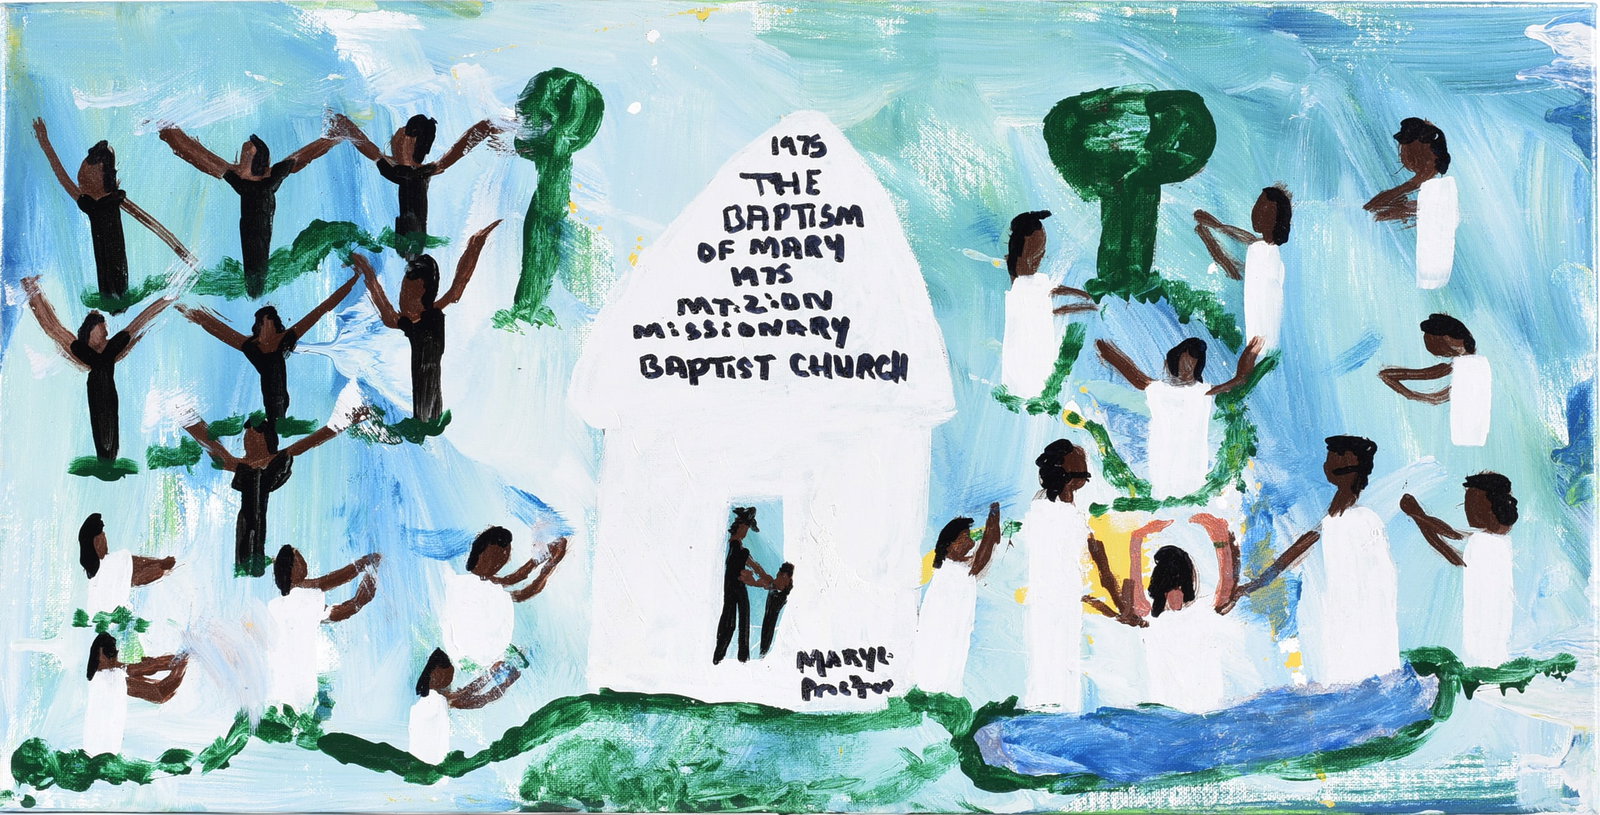 1975
THE
BAPTISM
OF MARY
1975
MT. ZION
MISSIONARY
BAPTIST CHURCH
MARY L.
Proctor